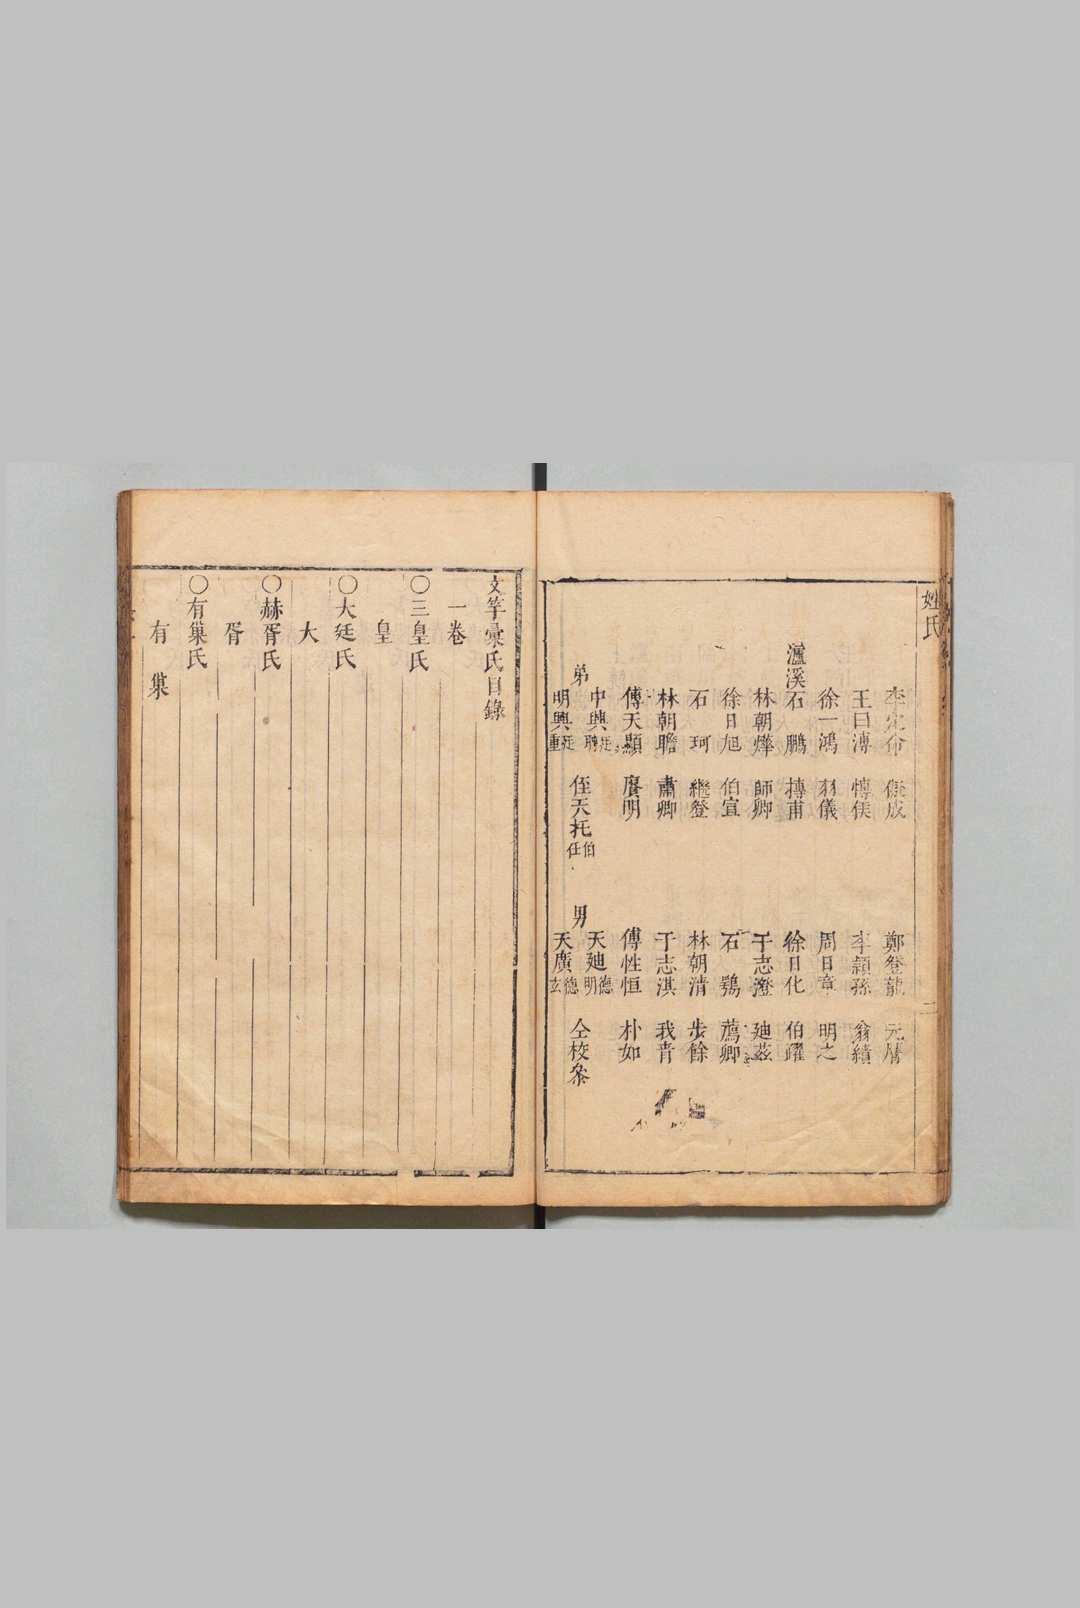 姓氏
李定命 傒成 鄭登龍 元曆
王曰溥 愽侯 李穎孫 翁績
徐一鴻 羽儀 周日章 明之
瀘溪石 鵬 摶甫 徐日化 伯躍
林朝燁 師卿 于志澄 廸茲
徐日旭 伯宣 石 鶚 薦卿
石 珂 繼登 林朝清 步餘
林朝瞻 肅卿 于志淇 我青
傅天顯 賡明 傅性恒 朴如
弟 中興廷聘 明興廷重 侄天托伯任 男 天廸德明 天廣德玄 仝校叅
二
文竿彙氏目錄
一卷
〇三皇氏
皇
〇大廷氏
大
〇赫胥氏
胥
〇有巢氏
有 巢